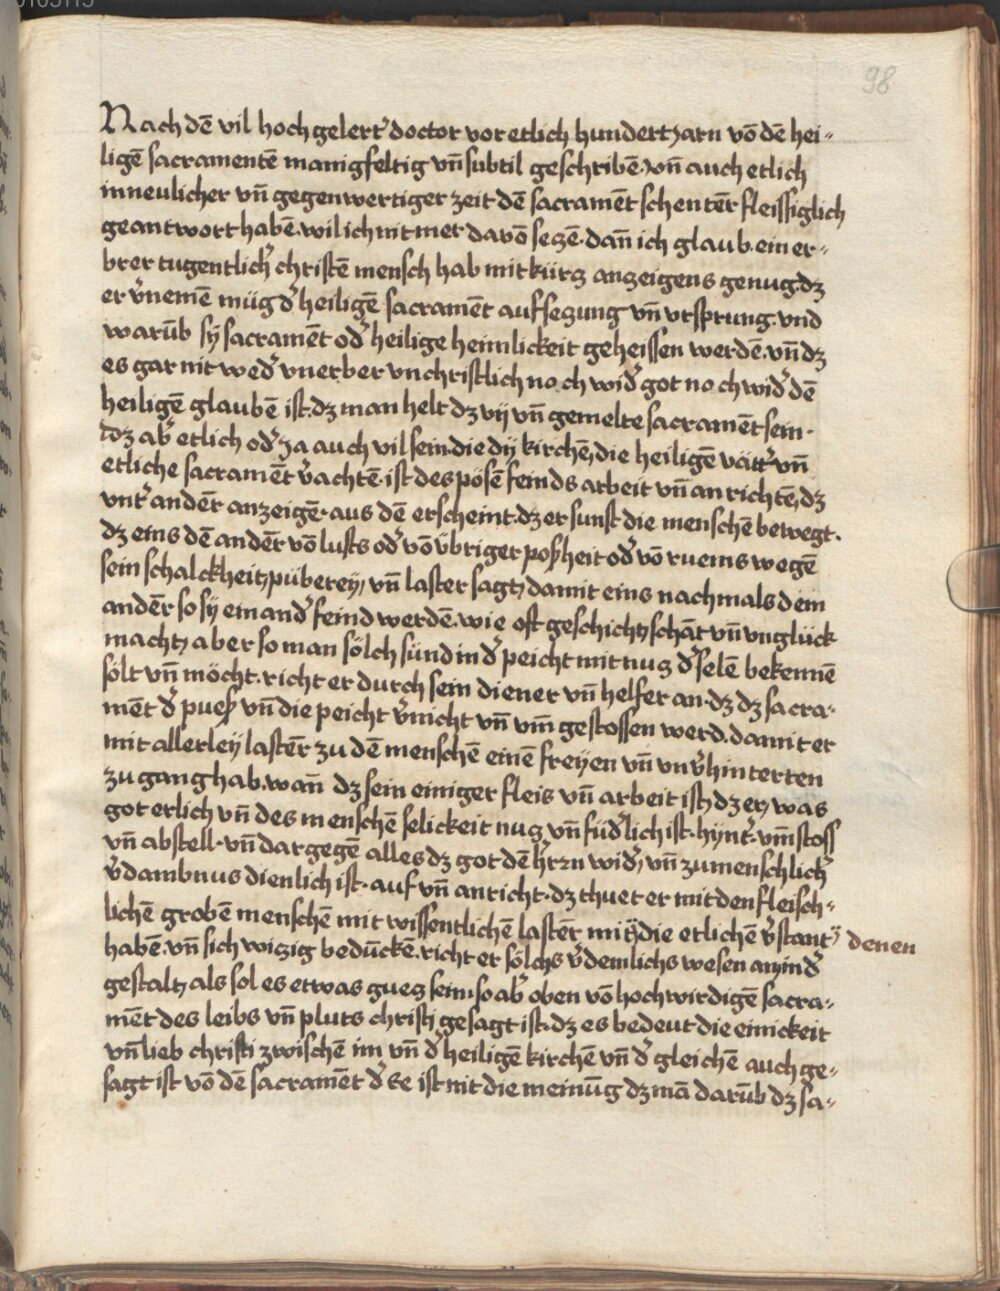 98
Nach dē vil hochgelert᾽ doctor vor etlich hundert jarn vō dē hei-
ligē sacramentē manigfeltig vn̄ subtil geschribē. vn̄ auch etlich
in neulicher vn̄ gegenwertiger zeit dē sacramēt schentēr fleissiglich
geantwort habē. wil ich nit mer darō sezē. dan̄ ich glaub. ein er-
brer tugentlich᾽ christē mensch hab mit kürz anzeigens genug. dz
er v᾽nemē müg d᾽ heiligē sacramēt aufsezung vn̄ vrsprung. vnd
warūb sÿ sacramēt od᾽ heilige heimlickeit geheissen werdē. vn̄ dz
es gar nit wed᾽ vnerber vnchristlich noch wid᾽ got noch wid᾽ dē
heiligē glaubē ist. dz man helt dz vij vn̄ gemelte sacramēt sein.
dz ab᾽ etlich od᾽ ja auch vil sein. die dÿ kirchē, die heiligē vätt᾽ vn̄
etliche sacramēt v᾽achtē. ist des pösē feinds arbeit vn̄ an richtē, dz
vnt᾽ andēr anzeigē. aus dē erscheint. dz er sunst die menschē bewegt.
dz eins dē andēr vō lusts od᾽ vō übriger poßheit od᾽ vō ruems wegē
sein schalckheit, püberej, vn̄ laster sagt, damit eins nachmals dem
andēr so sÿ einand᾽ feind werdē. wie oft geschicht, schāt vn̄ vnglück
macht, aber so man sölch sünd in d᾽ peicht mit nuz d᾽ selē bekennē
sölt vn̄ möcht. richt er durch sein diener vn̄ helfer an. dz dz sacra-
mēt d᾽ pueß vn̄ die peicht v᾽nicht vn̄ vm̄ gestossen werd. damit er
mit allerleÿ lastēr zu dē menschē einē freÿen vn̄ vnv᾽hinterten
zugang hab. wan̄ dz sein einiger fleis vn̄ arbeit ist, dz er, was
got erlich vn̄ des menschē selickeit nuz vn̄ füd᾽lich ist. hÿnt᾽. vm̄stoss
vn̄ abstell. vn̄ dargegē alles dz got dē h᾽rrn wid᾽, vn̄ zu menschlich᾽
v᾽dambnus dienlich ist. auf vn̄ anricht. dz thuet er mit den fleisch-
lichē grobē menschē mit wissentlichē lastēr mit, die etlichē v᾽stant denen
habē. vn̄ sich wizig bedūckē. richt er sölchs v᾽demlichs wesen an, in d᾽
gestalt, als sol es etwas guez sein. so ab᾽ oben vō hochwirdigē sacra-
mēt des leibs vn̄ pluts christi gesagt ist. dz es bedeut die einickeit
vn̄ lieb christi zwischē im vn̄ d᾽ heiligē kirchē vn̄ d᾽ gleichē auch ge-
sagt ist vō dē sacramēt d᾽ Ee ist nit die meinūg dz mā darūb dz sa-